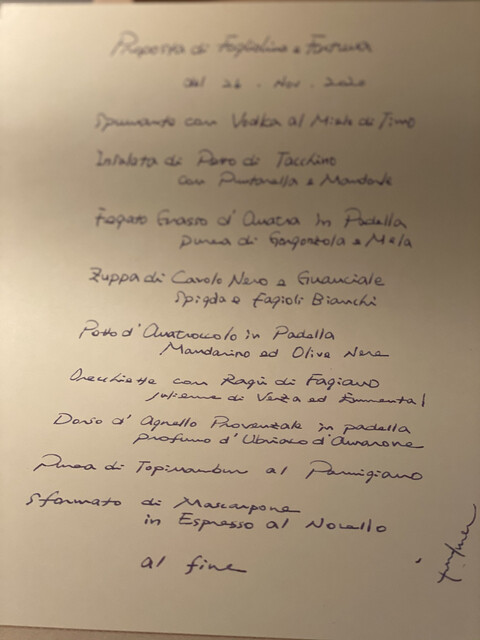 Proposta di Fagiolino e Fortuna
del 26. Nov. 2020
Spumante con Vodka al Miele di Timo
Insalata di Petto di Tacchino
con Puntarella e Mandorle
Fegato Grasso d'Anatra in Padella
purea di Gorgonzola e Mela
Zuppa di Cavolo Nero e Guanciale
Spigola e Fagioli Bianchi
Petto d'Anatroccolo in Padella
Mandarino ed Olive Nere
Orecchiette con Ragù di Fagiano
julienne di Verza ed Emmental
Dorso d'Agnello Provenzale in padella
profumo d'Ubriaco d'Amarone
Purea di Topinambur al Parmigiano
Sformato di Mascarpone
in Espresso al Nocello
al fine